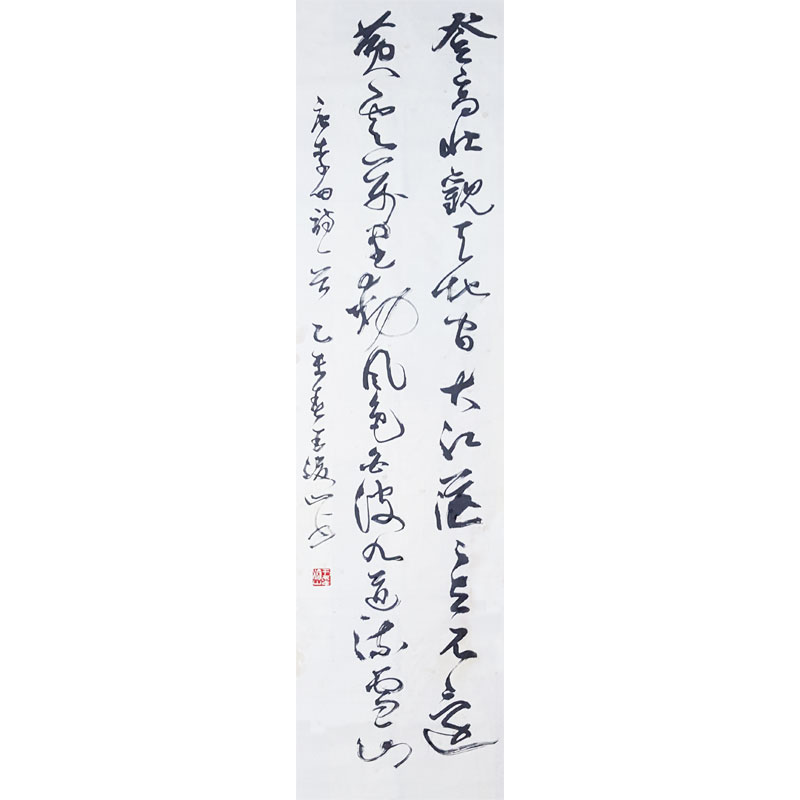 登高壮觀天地間大江茫茫去不還
黄雲萬里動風色白波九道流雪山
唐李白詩一首 乙未春王後山书